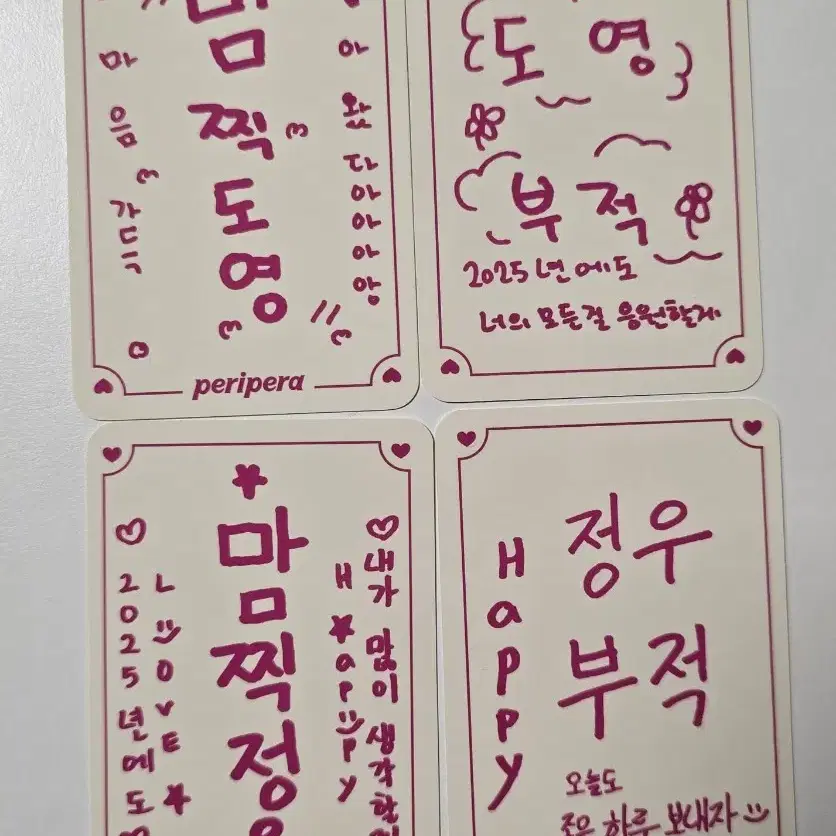 맘
찍
도
영
마
음
가
득
아
왔
다
아
아
아
앙
peripera
도영
부적
2025년에도
너의 모든걸 응원할게
맘
찍
정
2025년에도
LOVE
HaPPy
내가 많이 생각할
정우
부적
HaPPy
오늘도
좋은 하루 보내자